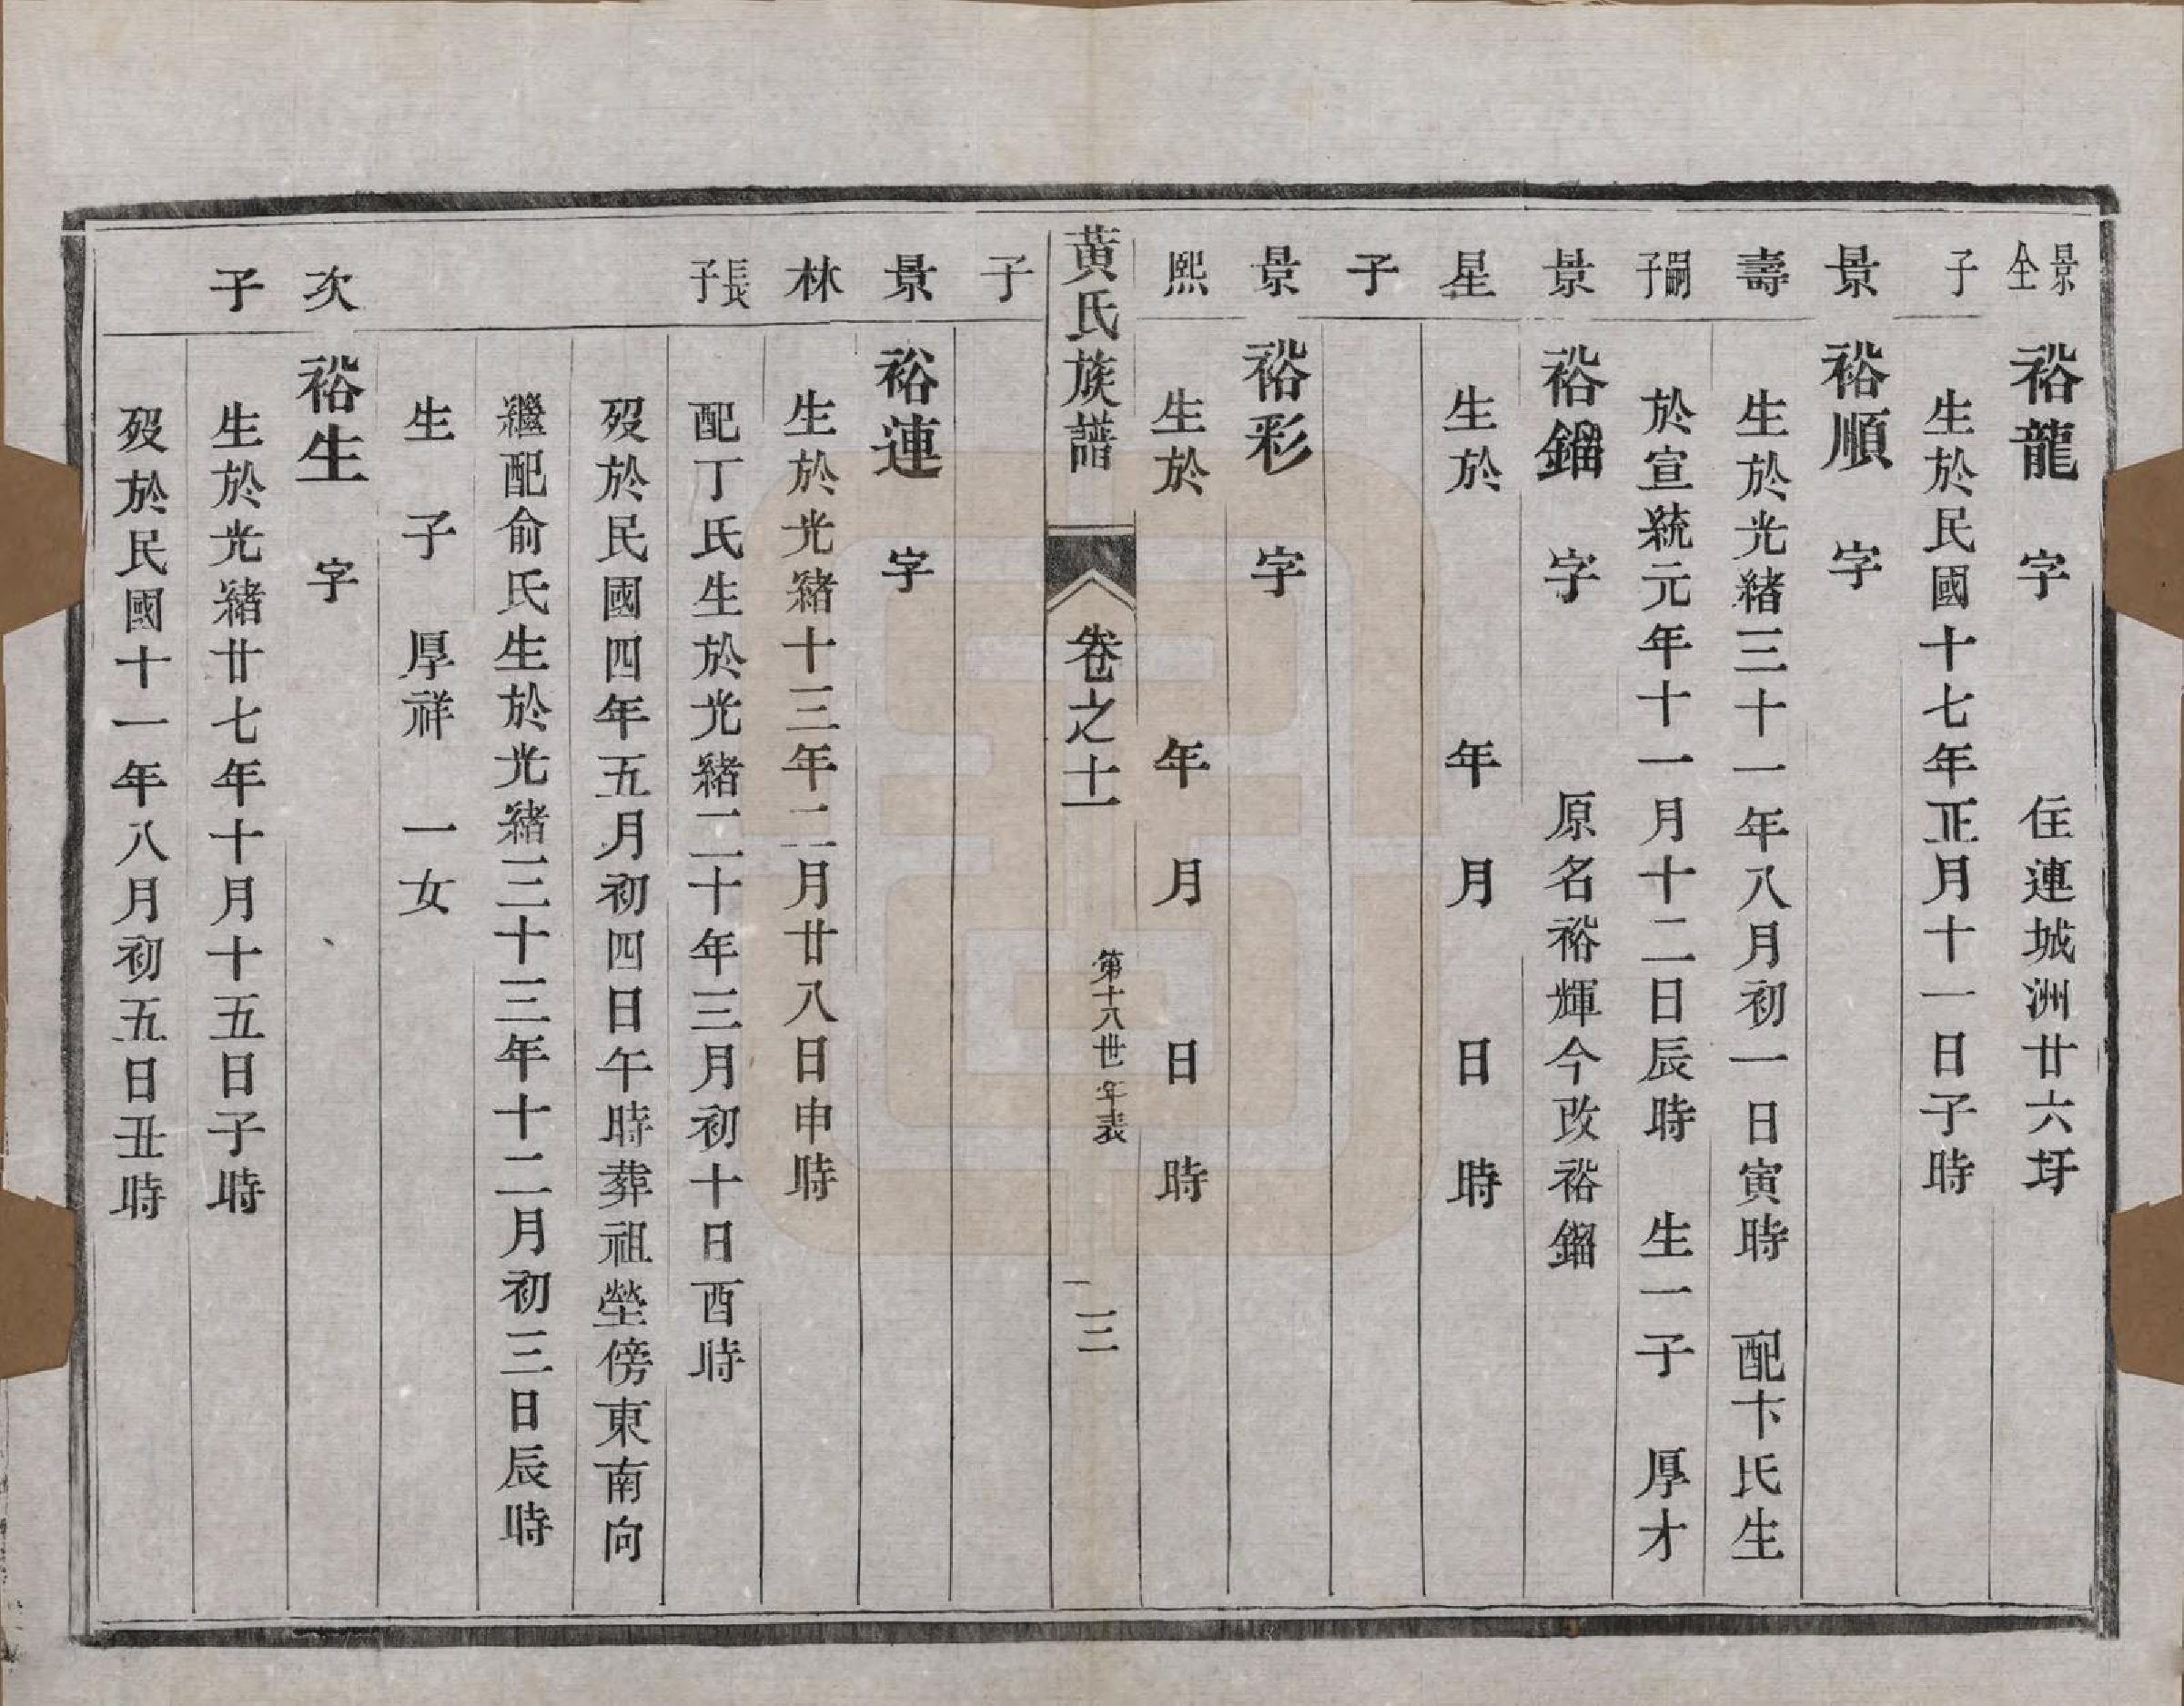 景仝 裕龍 字 住連城洲廿六圩
子 生於民國十七年正月十一日子時
景 裕順 字
壽 生於光緒三十一年八月初一日寅時 配卞氏生
嗣子 於宣統元年十一月十二日辰時 生一子 厚才
景 裕鎦 字 原名裕輝今改裕鎦
星 生於 年 月 日 時
子
景 裕彩 字
熙 生於 年 月 日 時
黄氏族譜 卷之十一 第十八世年表 三
子
景 裕連 字
林 生於光緒十三年二月廿八日申時
長子 配丁氏生於光緒二十年三月初十日酉時
歿於民國四年五月初四日午時葬祖塋傍東南向
繼配俞氏生於光緒三十三年十二月初三日辰時
生子 厚祥 一女
次 裕生 字
子 生於光緒廿七年十月十五日子時
歿於民國十一年八月初五日丑時